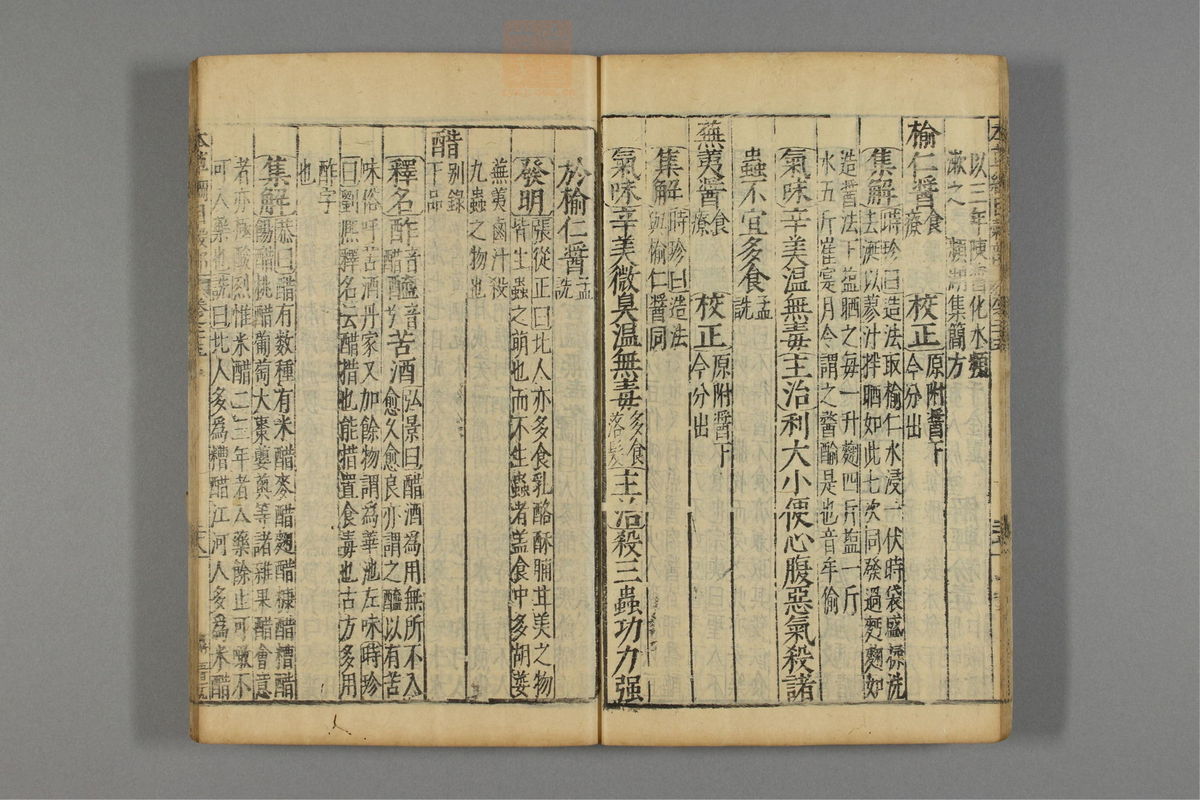 以三年陳醬化水類
漱之 瀕湖集簡方
榆仁醬食療 校正原附醬下今分出
集解時珍曰造法取榆仁水浸一伏時袋盛揉洗
去涎以蓼汁拌晒如此七次同發過麪麴如
造醬法下鹽晒之每一升麴四斤鹽一斤
水五斤崔寔月令謂之䤅䤈是也音牟偷
氣味辛美温無毒主治利大小便心腹惡氣殺諸
蟲不宜多食孟詵
蕪荑醬食療 校正原附醬下今分出
集解時珍曰造法
與榆仁醬同
氣味辛美微臭温無毒多食落髮主治殺三蟲功力强
於榆仁醬孟詵
發明張從正曰北人亦多食乳酪酥脯甘美之物
皆生蟲之萌也而不生蟲者盖食中多胡荽
蕪荑鹵汁殺
九蟲之物也
醋别錄下品
釋名酢音醋醯音苦酒弘景曰醋酒為用無所不入
愈久愈良亦謂之醯以有苦
味俗呼苦酒丹家又加餘物謂為華池左味時珍
曰劉熙釋名云醋措也能措置食毒也古方多用
酢字
也
集解恭曰醋有数種有米醋麥醋麴醋糠醋糟醋
餳醋桃醋葡萄大棗蘡薁等諸雜果醋會意
者亦極酸烈惟米醋二三年者入藥餘止可噉不
可入藥也詵曰北人多為糟醋江河人多為米醋